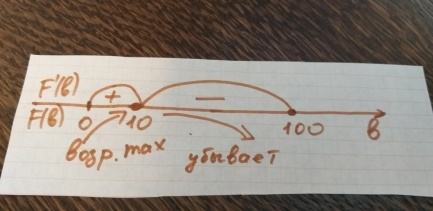 F'(в) + −
F(в) 0 10 100 в
возр. max убывает